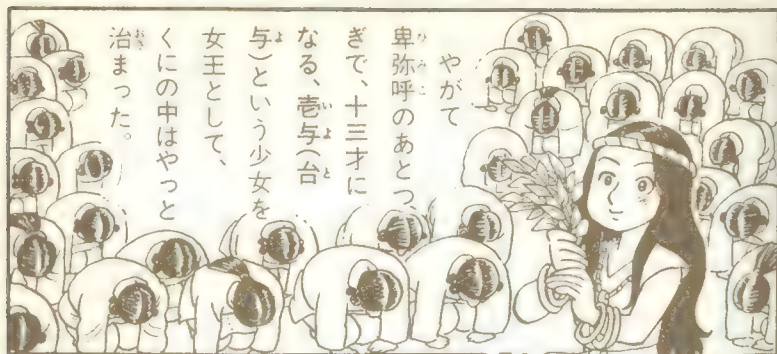 やがて
卑弥呼のあとつ
ぎで、十三才に
なる、壱与(台
与)という少女を
女王として、
くにの中はやっと
治まった。